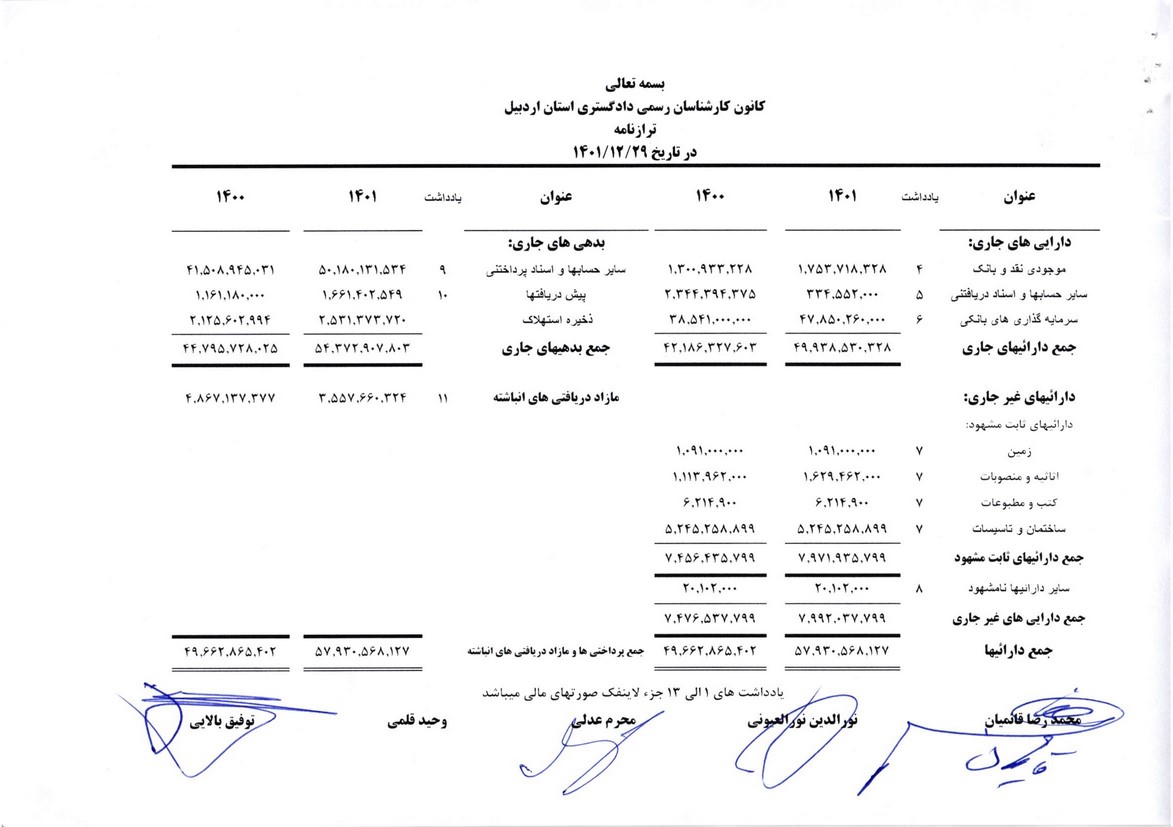 بسمه تعالی
کانون کارشناسان رسمی دادگستری استان اردبیل
ترازنامه
در تاریخ ۱۴۰۱/۱۲/۲۹
عنوان یادداشت ۱۴۰۱ ۱۴۰۰ عنوان یادداشت ۱۴۰۱ ۱۴۰۰
دارایی های جاری: بدهی های جاری:
موجودی نقد و بانک ۴ ۱,۷۵۳,۷۱۸,۳۲۸ ۱,۳۰۰,۹۳۳,۲۲۸ سایر حسابها و اسناد پرداختنی ۹ ۵۰,۱۸۰,۱۳۱,۵۳۴ ۴۱,۵۰۸,۹۴۵,۰۳۱
سایر حسابها و اسناد دریافتنی ۵ ۳۳۴,۵۵۲,۰۰۰ ۲,۳۴۴,۳۹۴,۳۷۵ پیش دریافتها ۱۰ ۱,۶۶۱,۴۰۲,۵۴۹ ۱,۱۶۱,۱۸۰,۰۰۰
سرمایه گذاری های بانکی ۶ ۴۷,۸۵۰,۲۶۰,۰۰۰ ۳۸,۵۴۱,۰۰۰,۰۰۰ ذخیره استهلاک ۲,۵۳۱,۳۷۳,۷۲۰ ۲,۱۲۵,۶۰۲,۹۹۴
جمع دارائیهای جاری ۴۹,۹۳۸,۵۳۰,۳۲۸ ۴۲,۱۸۶,۳۲۷,۶۰۳ جمع بدهیهای جاری ۵۴,۳۷۲,۹۰۷,۸۰۳ ۴۴,۷۹۵,۷۲۸,۰۲۵
دارائیهای غیر جاری: مازاد دریافتی های انباشته ۱۱ ۳,۵۵۷,۶۶۰,۳۲۴ ۴,۸۶۷,۱۳۷,۳۷۷
دارائیهای ثابت مشهود:
زمین ۷ ۱,۰۹۱,۰۰۰,۰۰۰ ۱,۰۹۱,۰۰۰,۰۰۰
اثاثیه و منصوبات ۷ ۱,۶۲۹,۴۶۲,۰۰۰ ۱,۱۱۳,۹۶۲,۰۰۰
کتب و مطبوعات ۷ ۶,۲۱۴,۹۰۰ ۶,۲۱۴,۹۰۰
ساختمان و تاسیسات ۷ ۵,۲۴۵,۲۵۸,۸۹۹ ۵,۲۴۵,۲۵۸,۸۹۹
جمع دارائیهای ثابت مشهود ۷,۹۷۱,۹۳۵,۷۹۹ ۷,۴۵۶,۴۳۵,۷۹۹
سایر دارائیها نامشهود ۸ ۲۰,۱۰۲,۰۰۰ ۲۰,۱۰۲,۰۰۰
جمع دارایی های غیر جاری ۷,۹۹۲,۰۳۷,۷۹۹ ۷,۴۷۶,۵۳۷,۷۹۹
جمع دارائیها ۵۷,۹۳۰,۵۶۸,۱۲۷ ۴۹,۶۶۲,۸۶۵,۴۰۲ جمع پرداختی ها و مازاد دریافتی های انباشته ۵۷,۹۳۰,۵۶۸,۱۲۷ ۴۹,۶۶۲,۸۶۵,۴۰۲
یادداشت های ۱ الی ۱۳ جزء لاینفک صورتهای مالی میباشد
محمد رضا قائمیان نورالدین نورالعیونی محرم عدلی وحید قلمی توفیق بالایی